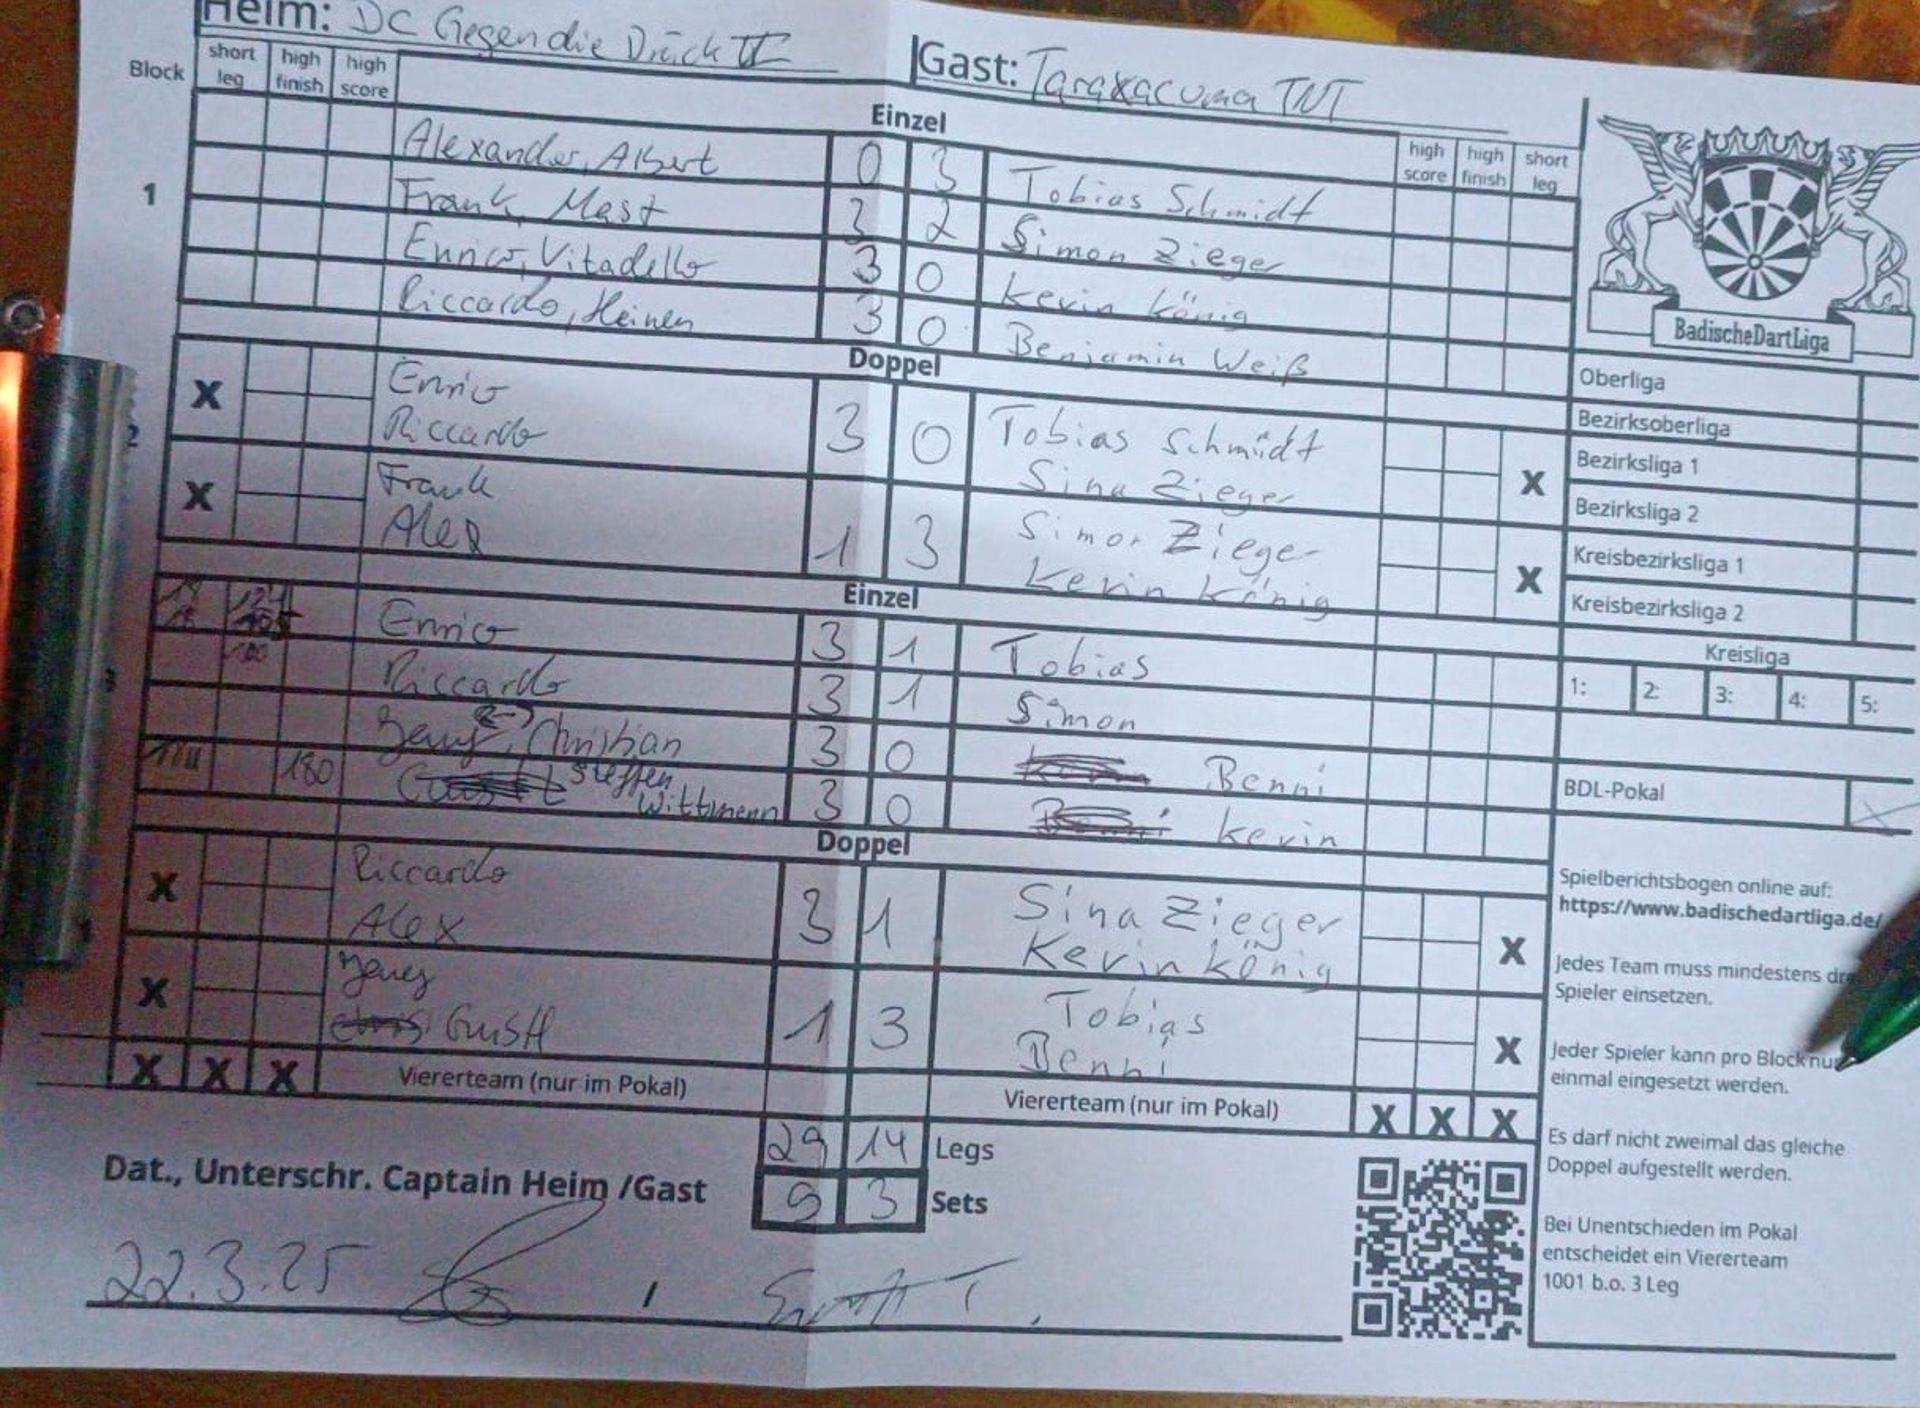 Heim: DC Gegen die Drück II
Gast: Taraxacuma TNT
Block short leg high finish high score
Einzel
high score high finish short leg
1
Alexander, Albert 0 3 Tobias Schmidt
Frank, Mast 3 2 Simon Zieger
Enrico, Vitadello 3 0 Kevin König
Riccardo, Heinen 3 0 Benjamin Weiß
Doppel
2
X Enrico Riccardo 3 0 Tobias Schmidt Sina Zieger X
X Frank Alex 1 3 Simon Zieger Kevin König X
Einzel
3
Enrico 3 1 Tobias
Riccardo 3 1 Simon
Christian 3 0 Benni
180 Steffen Wittmann 3 0 Kevin
Doppel
X Riccardo Alex 3 1 Sina Zieger Kevin König X
X 1 3 Tobias Benni X
X X X Viererteam (nur im Pokal) Viererteam (nur im Pokal) X X X
29 14 Legs
9 3 Sets
Dat., Unterschr. Captain Heim /Gast
22.3.25 /
BadischeDartLiga
Oberliga
Bezirksoberliga
Bezirksliga 1
Bezirksliga 2
Kreisbezirksliga 1
Kreisbezirksliga 2
Kreisliga
1: 2: 3: 4: 5:
BDL-Pokal X
Spielberichtsbogen online auf:
https://www.badischedartliga.de/
Jedes Team muss mindestens
Spieler einsetzen.
Jeder Spieler kann pro Block nur
einmal eingesetzt werden.
Es darf nicht zweimal das gleiche
Doppel aufgestellt werden.
Bei Unentschieden im Pokal
entscheidet ein Viererteam
1001 b.o. 3 Leg